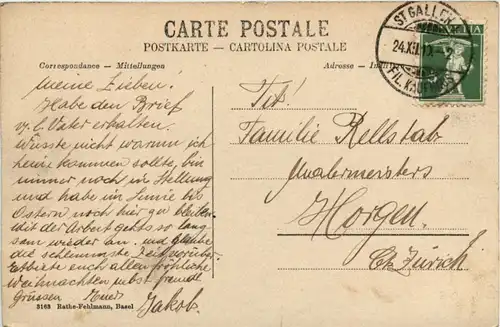 CARTE POSTALE
POSTKARTE – CARTOLINA POSTALE
Correspondance – Mitteilungen
Adresse –
ST. GALLEN
24.XII.1
FIL. KAUFH
HELVETIA
Meine Lieben!
Habe den Brief
v. l. Vater erhalten.
Wüsste nicht warum ich
heim kommen sollte, bin
immer noch in Stellung
und habe im Sinne bis
Ostern noch hier zu bleiben.
Mit der Arbeit gehts so lang
sam wieder an. und glaube
die schlimmste Zeit vorüber.
Entbiete euch allen fröhliche
Weihnachten nebst freundl
Grüssen Euer
Jakob.
Tit!
Familie Rellstab
Malermeisters
Horgen.
Ct. Zürich.
3163 Rathe-Fehlmann, Basel